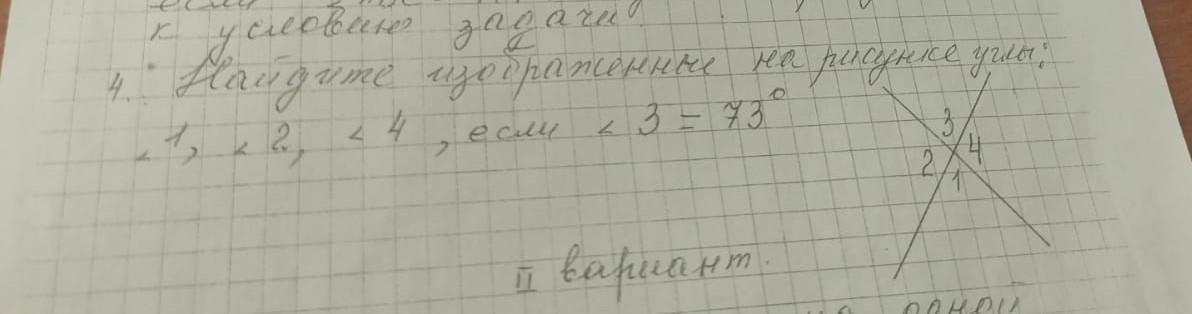 к условию задачи
4. Найдите изображенные на рисунке углы:
∠1, ∠2, ∠4, если ∠3 = 73°
3
2 4
1
II вариант.
одной